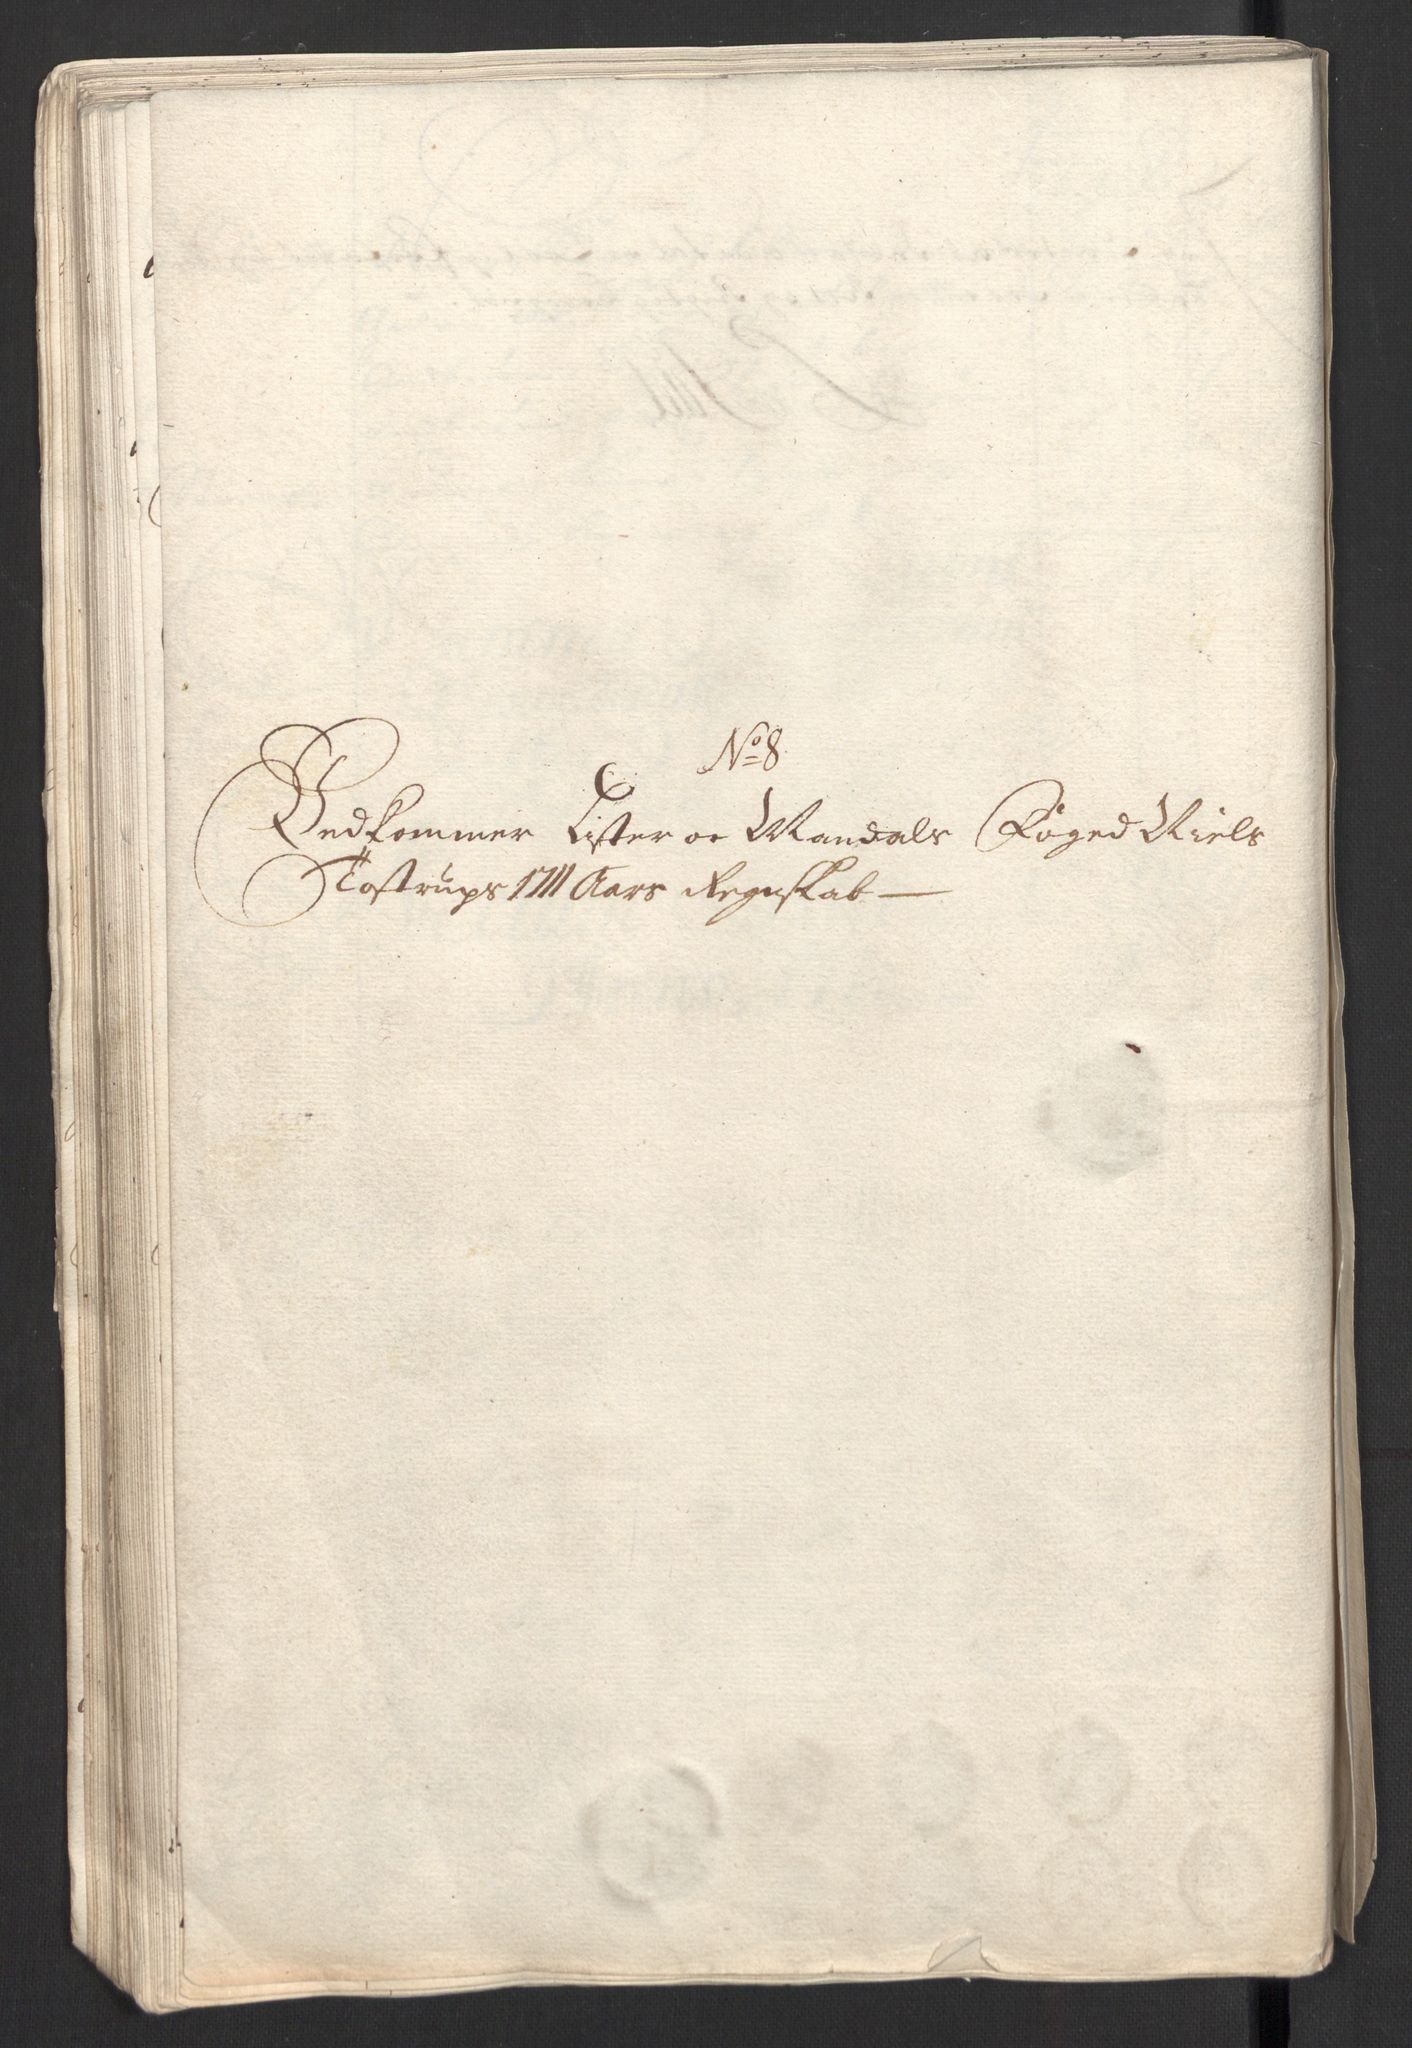 No 8
Vedkommer Lister oc Mandals Foged Niels
Tostrups 1711 Aars Regnskab